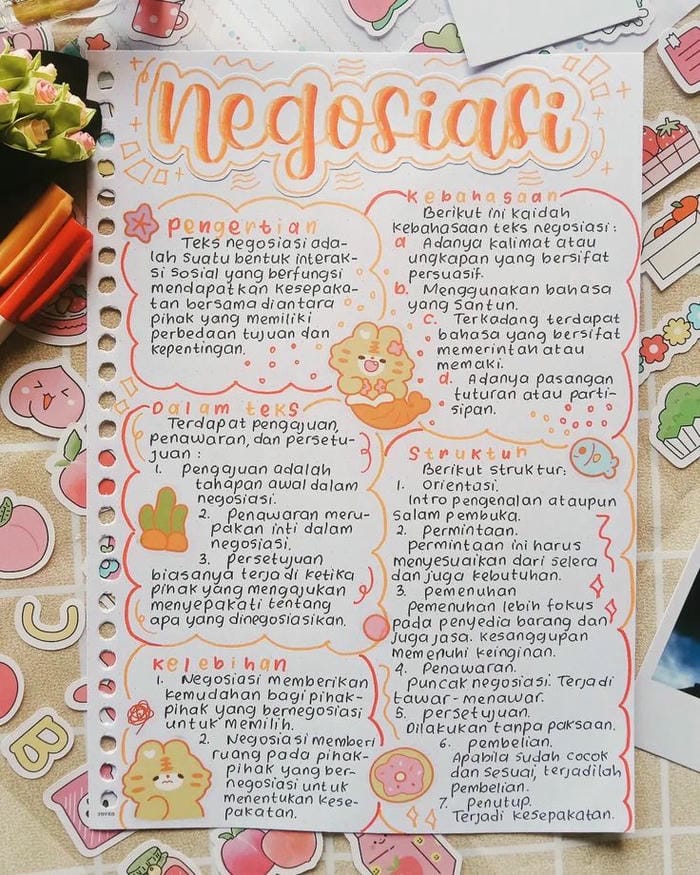 negosiasi
Pengertian
Teks negosiasi ada-
lah suatu bentuk interak-
si sosial yang berfungsi
mendapatkan kesepaka-
tan bersama diantara
pihak yang memiliki
perbedaan tujuan dan
kepentingan.
Dalam teks
Terdapat pengajuan,
penawaran, dan persetu-
juan :
1. Pengajuan adalah
tahapan awal dalam
negosiasi.
2. Penawaran meru-
pakan inti dalam
negosiasi.
3. Persetujuan
biasanya terjadi ketika
pihak yang mengajukan
menyepakati tentang
apa yang dinegosiasikan.
Kelebihan
1. Negosiasi memberikan
kemudahan bagi pihak-
pihak yang bernegosiasi
untuk memilih.
2. Negosiasi memberi
ruang pada pihak-
pihak yang ber-
negosiasi untuk
menentukan kese-
pakatan.
Kebahasaan
Berikut ini kaidah
kebahasaan teks negosiasi :
a Adanya kalimat atau
ungkapan yang bersifat
persuasif.
b. Menggunakan bahasa
yang santun.
c. Terkadang terdapat
bahasa yang bersifat
memerintah atau
memaki.
d. Adanya pasangan
tuturan atau parti-
sipan.
Struktur
Berikut struktur:
1. Orientasi.
Intro pengenalan ataupun
salam pembuka.
2. Permintaan.
Permintaan ini harus
menyesuaikan dari selera
dan juga kebutuhan.
3. pemenuhan
Pemenuhan lebih fokus
pada penyedia barang dan
juga jasa. kesanggupan
memenuhi keinginan.
4. Penawaran.
Puncak negosiasi. Terjadi
tawar-menawar.
5. persetujuan.
Dilakukan tanpa paksaan.
6. pembelian.
Apabila sudah cocok
dan sesuai, terjadilah
pembelian.
7. Penutup.
Terjadi kesepakatan.
JOYKO
B